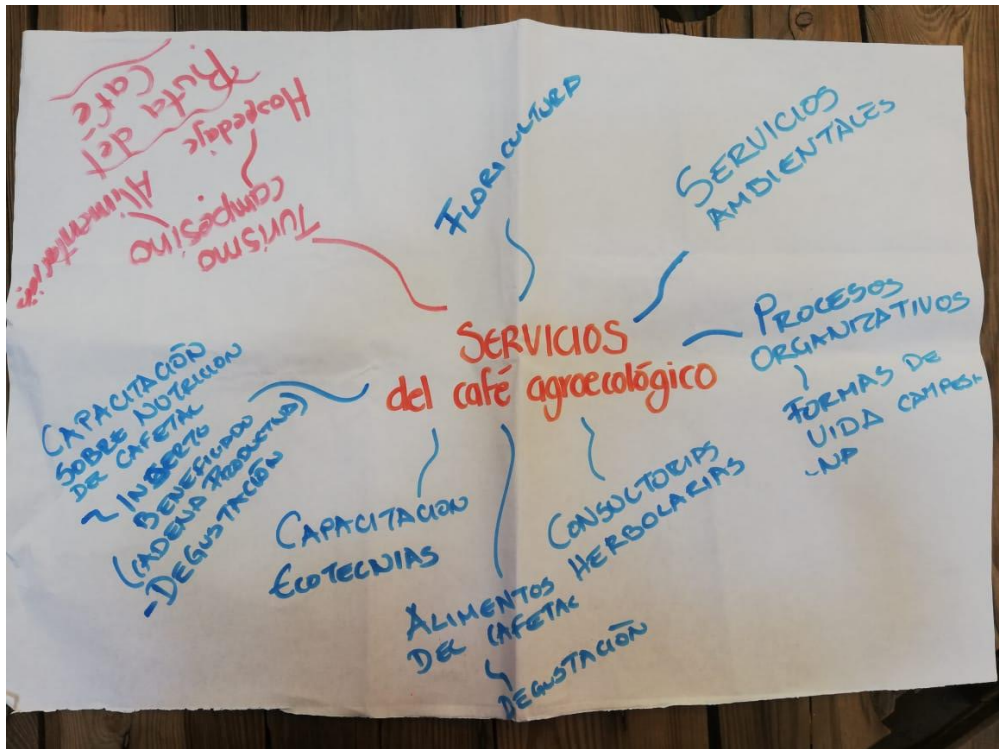 SERVICIOS
del café agroecológico
Turismo
campesino
Hospedaje
Alimentación
Ruta del
Café
FLORICULTURA
SERVICIOS
AMBIENTALES
PROCESOS
ORGANIZATIVOS
FORMAS DE
VIDA CAMPESI
-NA
CONSULTORIAS
HERBOLARIAS
ALIMENTOS
DEL CAFETAL
DEGUSTACIÓN
CAPACITACION
ECOTECNIAS
CAPACITACIÓN
SOBRE NUTRICION
DEL CAFETAL
~ INGERTO
BENEFICIADO
(CADENA PRODUCTIVA)
-DEGUSTACIÓN